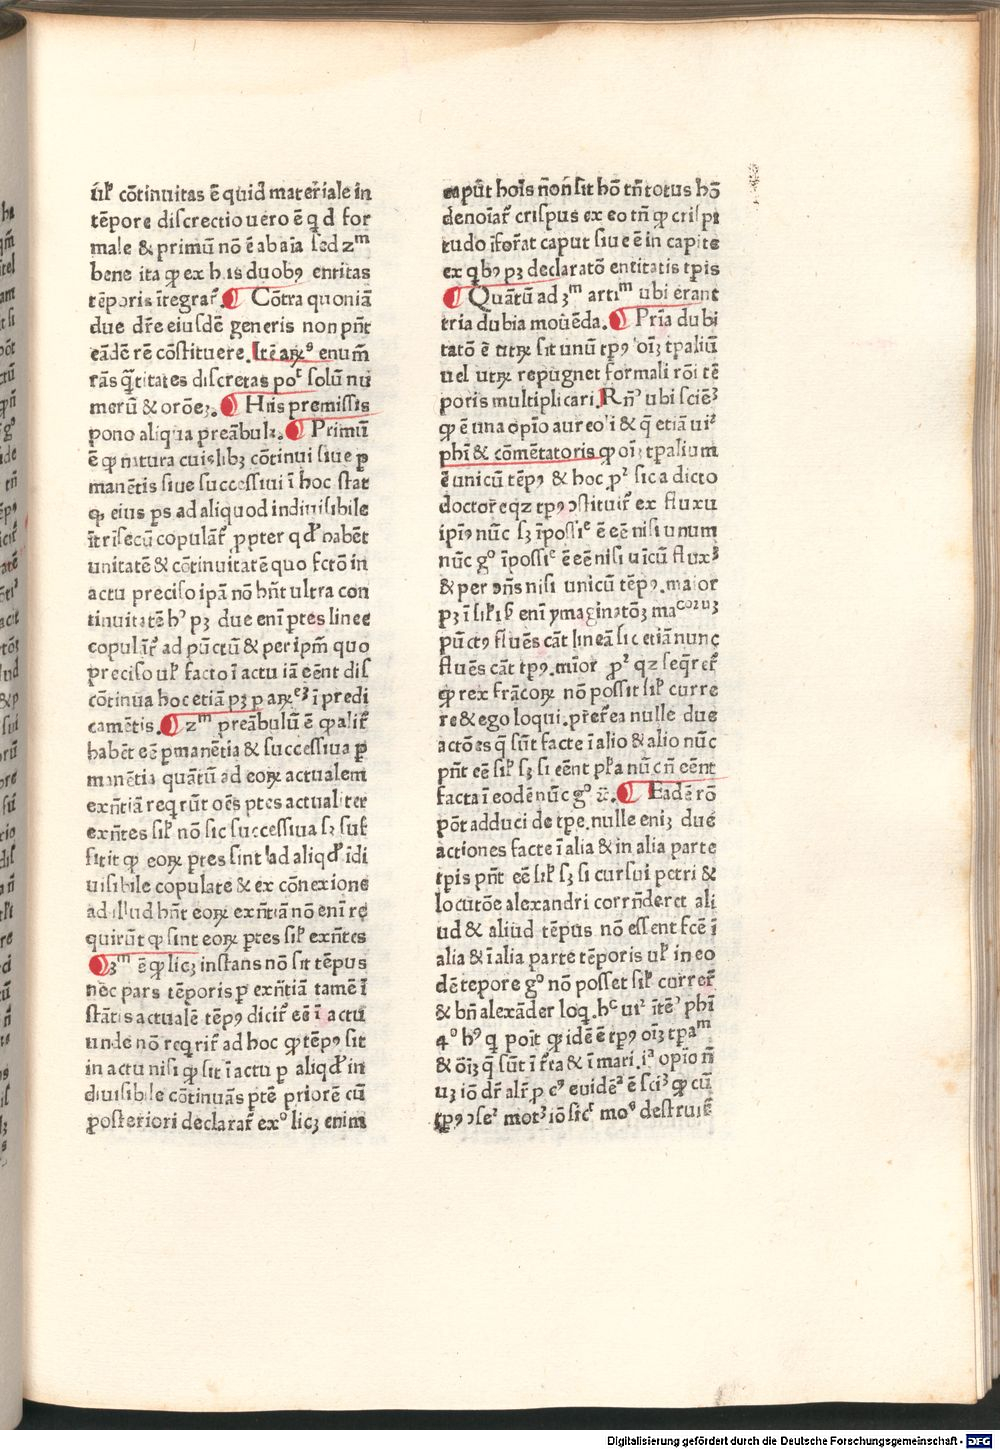 ſil̄ cōtinuitas ē quid mater̄iale in
tēpore diſcrectio uero ē q d for
male & primū nō ē abaīa ſed 2ᵐ
bene ita ꝙ ex his duobꝰ entitas
tēporis ītegrar̄. Cōtra quoniā
due dr̄e eiuſdē generis non pn̄t
eādē rē cōſtituere. Itē arꝫᵒ enum̄
rās q̄titates diſcretas poᶜ ſolū nu
merū & orōeꝫ. Hiis premiſſis
pono aliqua preābula. Primū
ē ꝙ natura cuiuſlibꝫ cōtinui ſiue ꝑ
manētis ſiue ſucceſſiui ī hoc ſtat
ꝙ eius ꝑs ad aliquod indiuiſibile
ītrīſecū copulār̄ ꝓpter qđ habēt
unitatē & cōtinuitatē quo fctō in
actu preciſo ipā nō hn̄t ultra con
tinuitatē hꝰ pꝫ due enī ꝑtes linee
copulār̄ ad pūctū & per ipm̄ quo
preciſo ul̄ facto ī actu iā eēnt diſ
cōtinua hoc etiā pꝫ ꝑ arꝫ ī predi
camētis. 2ᵐ preābulū ē ꝙ alit̄
habēt eē ꝑmanētia & ſucceſſiua ꝑ
manētia quātū ad eoꝝ actualem
exn̄tiā reqrūt oēs ꝑtes actualiter
exn̄tes ſil̄ nō ſic ſucceſſiua ſꝫ ſuf
ficit ꝙ eoꝝ ꝑtes ſint ad aliqđ īdi
uiſibile copulate & ex cōnexione
ad illud hn̄t eoꝝ exn̄tiā nō enī re
quirūt ꝙ ſint eoꝝ ꝑtes ſil̄ exn̄tes
3ᵐ ē ꝙ licꝫ inſtans nō ſit tēpus
nec pars tēporis ꝑ exn̄tiā tamē ī
ſtātis actualē tēpꝰ dicit̄ eē ī actu
unde nō reqrit̄ ad hoc ꝙ tēpꝰ ſit
in actu niſi ꝙ ſit ī actu ꝑ aliqđ in
diuiſibile cōtinuās ꝑtē priorē cū
poſteriori declarar̄ exᵒ licꝫ enim
caput hoīs nōn ſit hō tn̄ totus hō
denoīar̄ criſpus ex eo tn̄ ꝙ criſpi
tudo īfor̄at caput ſiue ē in capite
ex qbꝰ pꝫ declaratō entitatis tꝑis
Quātū ad 3ᵐ artiᵐ ubi erant
tria dubia mouēda. Pria dubi
tatō ē utrꝫ ſit unū tꝑꝰ oīꝫ tꝑaliū
uel utrꝫ repugnet formali rōi tē
poris multiplicari. Rn̄ ubi ſciēꝫ
ꝙ ē una opīo aureoli & q̄ etiā uiꝛ
phī & cōmētatoris ꝙ oīꝫ tꝑalium
ē unicū tēpꝰ & hoc ꝓꝛ ſic a dicto
doctor̄e qz tꝑꝰ ɔſtituir̄ ex fluxu
ipīꝰ nūc ſꝫ īpoſſiᵉ ē eē niſi unum
nūc gᵒ īpoſſiᵉ ē eē niſi uīcū fluxꝫ
& per ɔn̄s niſi unicū tēpꝰ. maior
pꝫ ī ſil̄ibꝰ enī ymaginatōꝫ
pūctꝰ fluēs cāt lineā ſic etiā nunc
fluēs cāt tꝑꝰ. mīor ꝓꝛ qz ſeqrer̄
ꝙ rex frācoꝝ nō poſſit ſil̄ curre
re & ego loqui. pret̄ea nulle due
actōes q̄ ſūt facte ī alio & alio nūc
pn̄t eē ſil̄ ſꝫ ſi eēnt pl̄a nūc n̄ eēnt
facta ī eodē nūc gᵒ ⁊c̄. Eadē rō
pōt adduci de tꝑe. nulle eniꝫ due
actiones facte ī alia & in alia parte
tꝑis pn̄t eē ſil̄ ſꝫ ſi curſui petri &
locutōe alexandri corrn̄deret ali
ud & aliud tēpus nō eſſent fcē ī
alia & ī alia parte tēporis ul̄ in eo
dē tepore gᵒ nō poſſet ſil̄ currer̄
& bn̄ alexāder loq. hᶜ uiꝛ ītēꝰ phī
4ᵒ hꝰ q poīt ꝙ idē ē tꝑꝰ oīꝫ tꝑaᵐ
& oīꝫ q̄ ſūt ī tr̄a & ī mari. iᵃ opīo n̄
uꝫ iō dr̄ alr̄ ꝑ cꝰ euidēᵃ ē ſciꝫ ꝙ cū
tꝑꝰ ɔſeꝛ motꝫ iō ſicꝛ moᵒ deſtruit̄
Digitalisierung gefördert durch die Deutsche Forschungsgemeinschaft - DFG